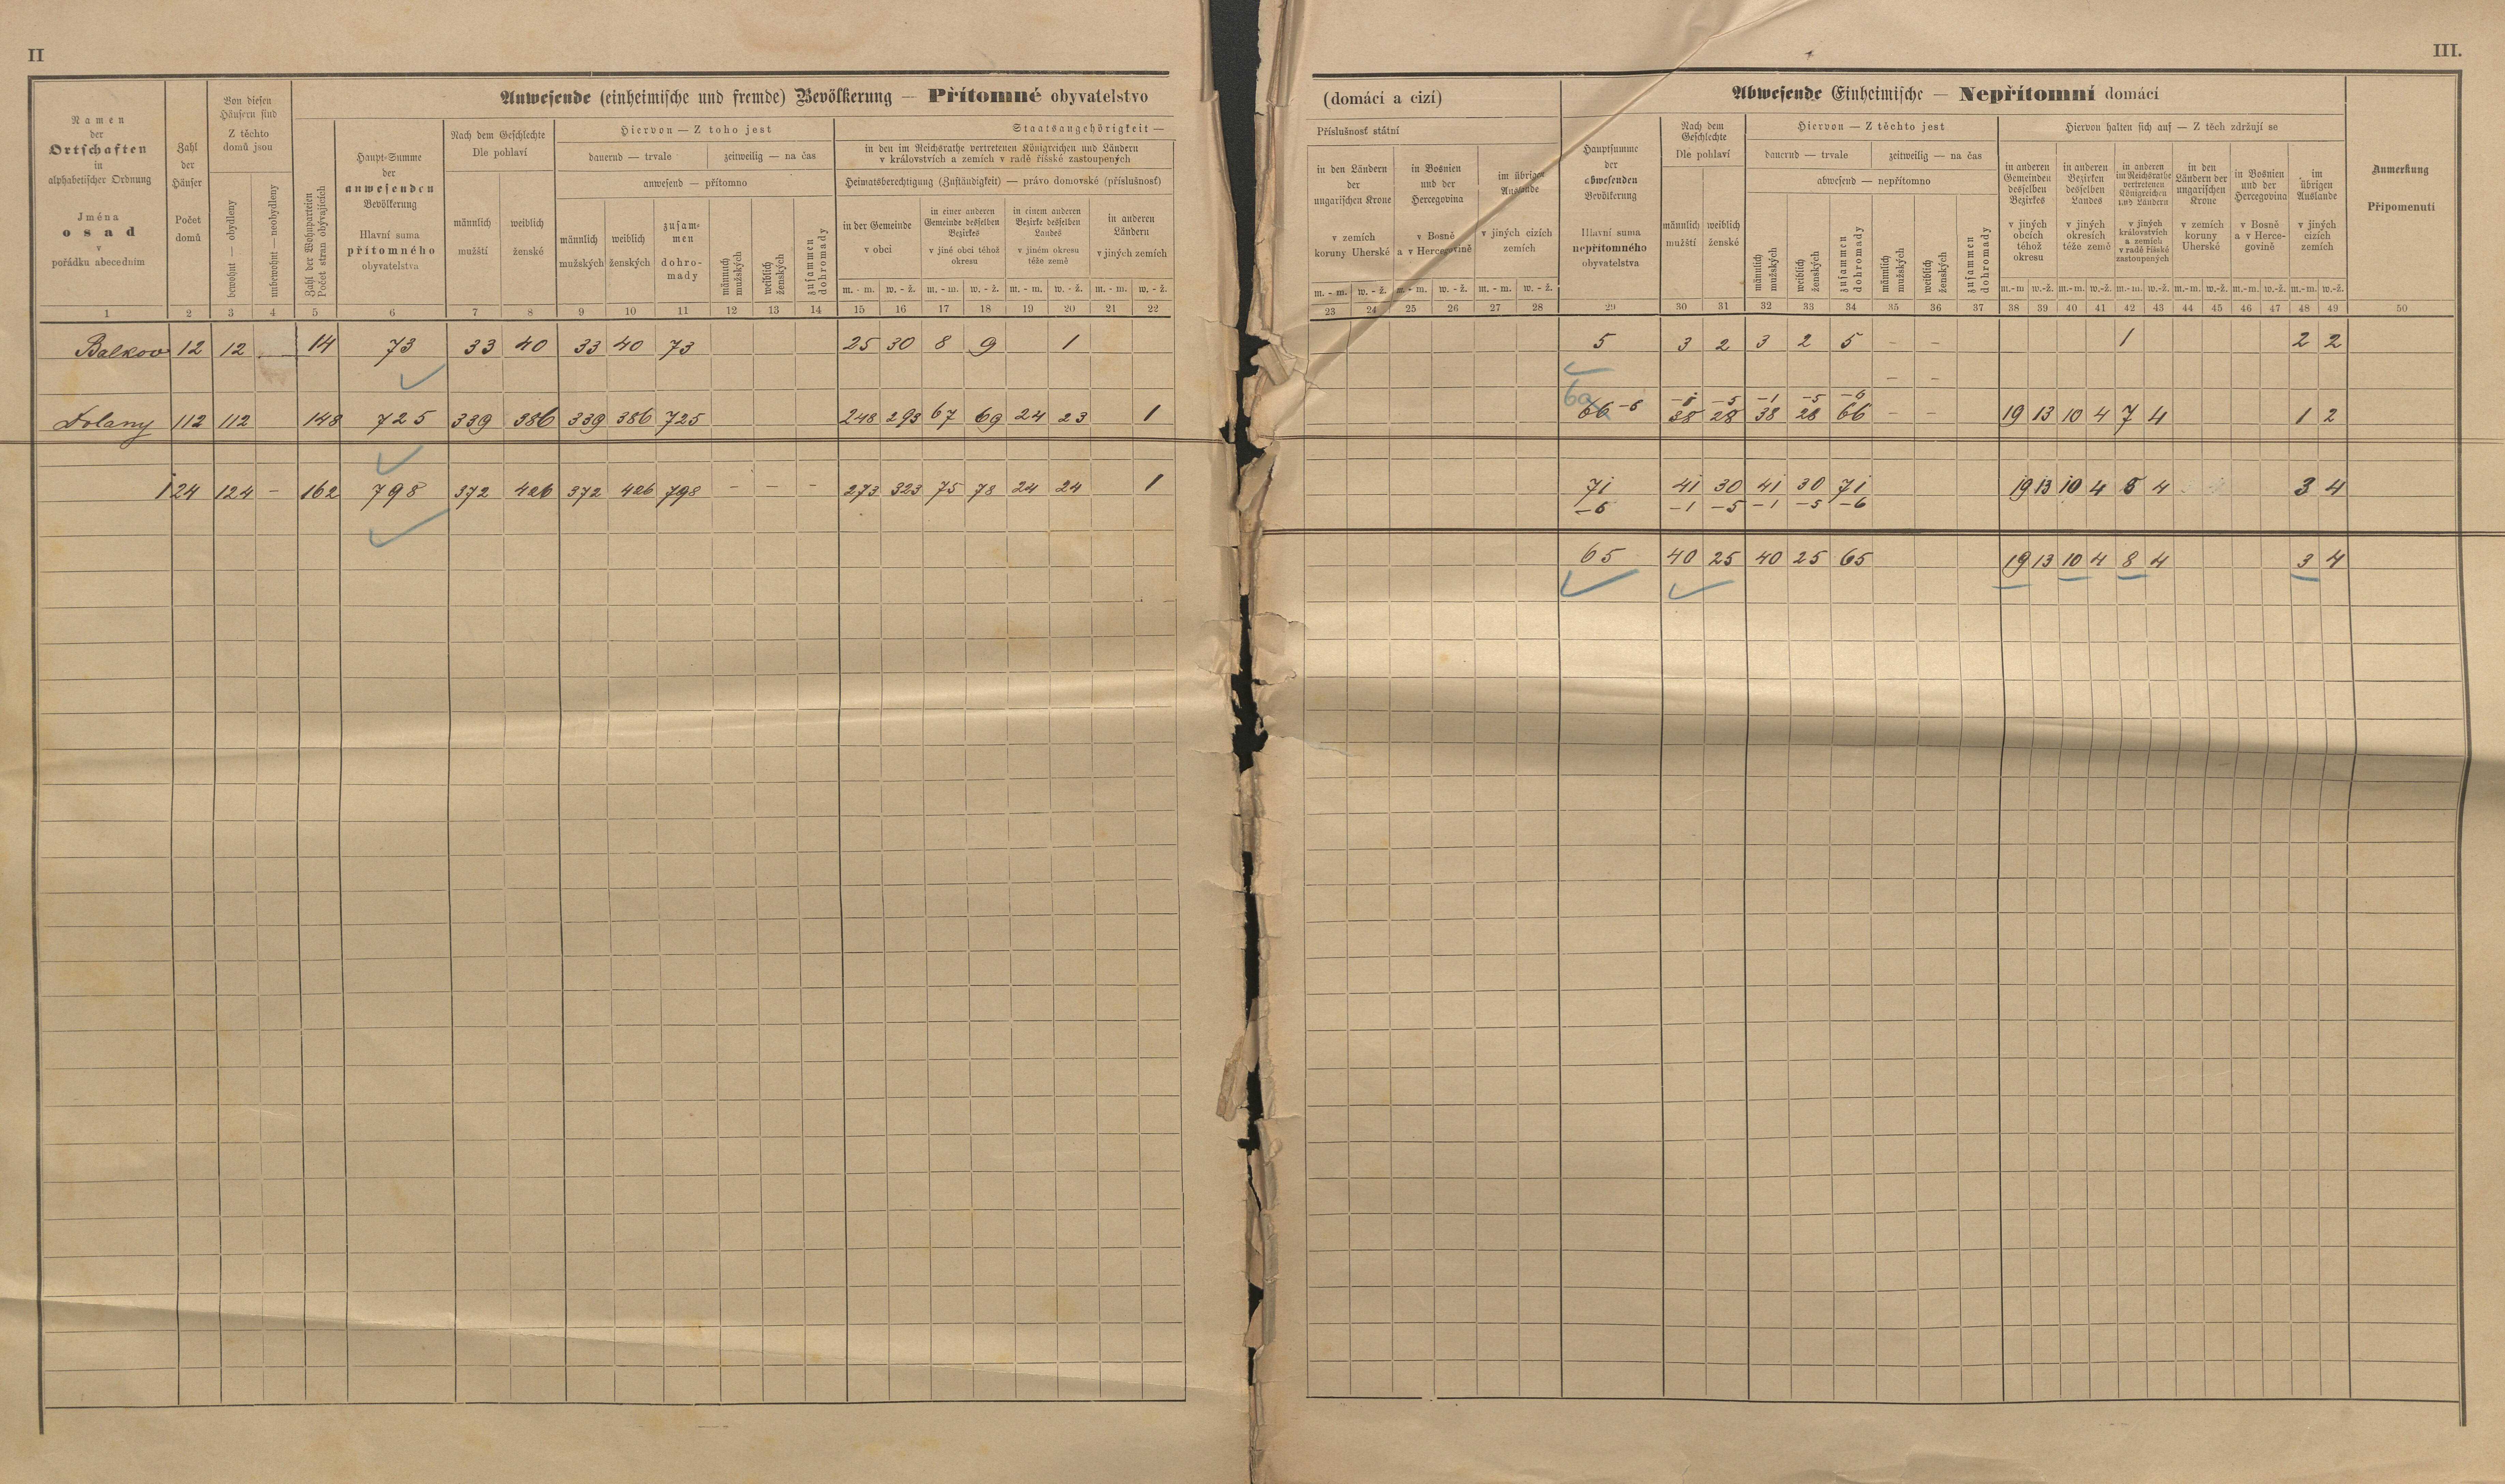 II
Anwesende (einheimische und fremde) Bevölkerung — Přítomné obyvatelstvo
Namen
der
Ortschaften
in
alphabetischer Ordnung
Jména
osad
v
pořádku abecedním
Zahl
der
Häuser
Počet
domů
Von diesen
Häusern sind
Z těchto
domů jsou
bewohnt — obydleny
unbewohnt — neobydleny
Zahl der Wohnparteien
Počet stran obývajících
Haupt-Summe
der
anwesenden
Bevölkerung
Hlavní suma
přítomného
obyvatelstva
Nach dem Geschlechte
Dle pohlaví
männlich
mužští
weiblich
ženské
Hiervon — Z toho jest
dauernd — trvale
zeitweilig — na čas
anwesend — přítomno
männlich
mužských
weiblich
ženských
zusam-
men
dohro-
mady
männlich
mužských
weiblich
ženských
zusammen
dohromady
Staatsangehörigkeit —
in den im Reichsrathe vertretenen Königreichen und Ländern
v královstvích a zemích v radě říšské zastoupených
Heimatsberechtigung (Zuständigkeit) — právo domovské (příslušnosť)
in der Gemeinde
v obci
in einer anderen
Gemeinde desselben
Bezirkes
v jiné obci téhož
okresu
in einem anderen
Bezirke desselben
Landes
v jiném okresu
téže země
in anderen
Ländern
v jiných zemích
m. - m. w. - ž. m. - m. w. - ž. m. - m. w. - ž. m. - m. w. - ž.
1 2 3 4 5 6 7 8 9 10 11 12 13 14 15 16 17 18 19 20 21 22
Balkov 12 12 14 73 33 40 33 40 73 25 30 8 9 1
Dolany 112 112 148 725 339 386 339 386 725 248 293 67 69 24 23 1
124 124 – 162 798 372 426 372 426 798 – – – 273 323 75 78 24 24 1
III.
(domácí a cizí)
Příslušnosť státní
in den Ländern
der
ungarischen Krone
v zemích
koruny Uherské
in Bosnien
und der
Hercegovina
v Bosně
a v Hercegovině
im übrigen
Auslande
v jiných cizích
zemích
m. - m. w. - ž. m. - m. w. - ž. m. - m. w. - ž.
Abwesende Einheimische — Nepřítomní domácí
Hauptsumme
der
abwesenden
Bevölkerung
Hlavní suma
nepřítomného
obyvatelstva
Nach dem
Geschlechte
Dle pohlaví
männlich
mužští
weiblich
ženské
Hiervon — Z těchto jest
dauernd — trvale
zeitweilig — na čas
abwesend — nepřítomno
männlich
mužských
weiblich
ženských
zusammen
dohromady
männlich
mužských
weiblich
ženských
zusammen
dohromady
Hiervon halten sich auf — Z těch zdržují se
in anderen
Gemeinden
desselben
Bezirkes
v jiných
obcích
téhož
okresu
in anderen
Bezirken
desselben
Landes
v jiných
okresích
téže země
in anderen
im Reichsrathe
vertretenen
Königreichen
und Ländern
v jiných
královstvích
a zemích
v radě říšské
zastoupených
in den
Ländern der
ungarischen
Krone
v zemích
koruny
Uherské
in Bosnien
und der
Hercegovina
v Bosně
a v Herce-
govině
im
übrigen
Auslande
v jiných
cizích
zemích
m.-m w.-ž. m.-m. w.-ž. m.-m. w.-ž. m.-m. w.-ž. m.-m. w.-ž. m.-m. w.-ž.
Anmerkung
Připomenutí
23 24 25 26 27 28 29 30 31 32 33 34 35 36 37 38 39 40 41 42 43 44 45 46 47 48 49 50
5 3 2 3 2 5 – – 1 2 2
– –
60 –1 –5 –1 –5 –6
66 –6 38 28 38 28 66 – – 19 13 10 4 7 4 1 2
71 41 30 41 30 71 19 13 10 4 8 4 3 4
–6 –1 –5 –1 –5 –6
65 40 25 40 25 65 19 13 10 4 8 4 3 4